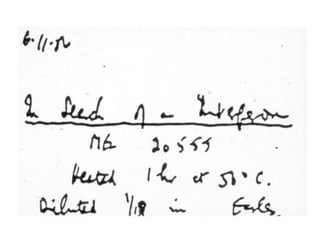 6.11.56
In Search of an Interferon
20555
Heated 1 hr at 50° C.
Diluted 1/10 in Earles